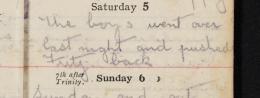 Saturday 5
The boys went over
last night and pushed
Fritz back
7th after
Trinity. Sunday 6
Sunday and out